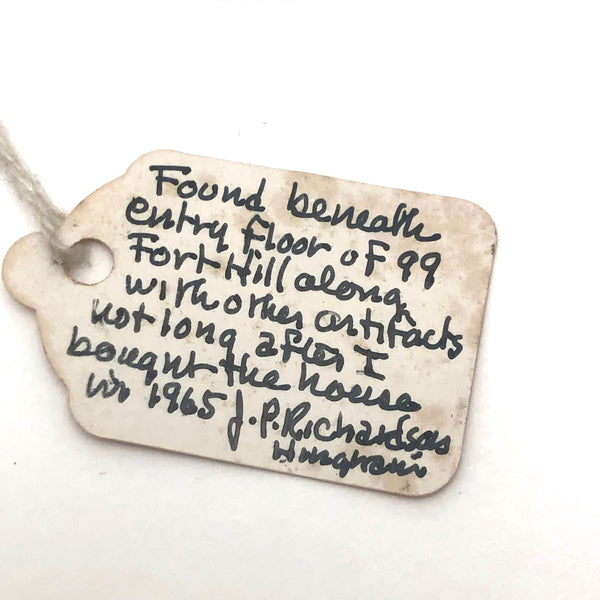 Found beneath
entry floor of 99
Fort Hill along
with other artifacts
not long after I
bought the house
in 1965 J.P. Richardson
Hingham